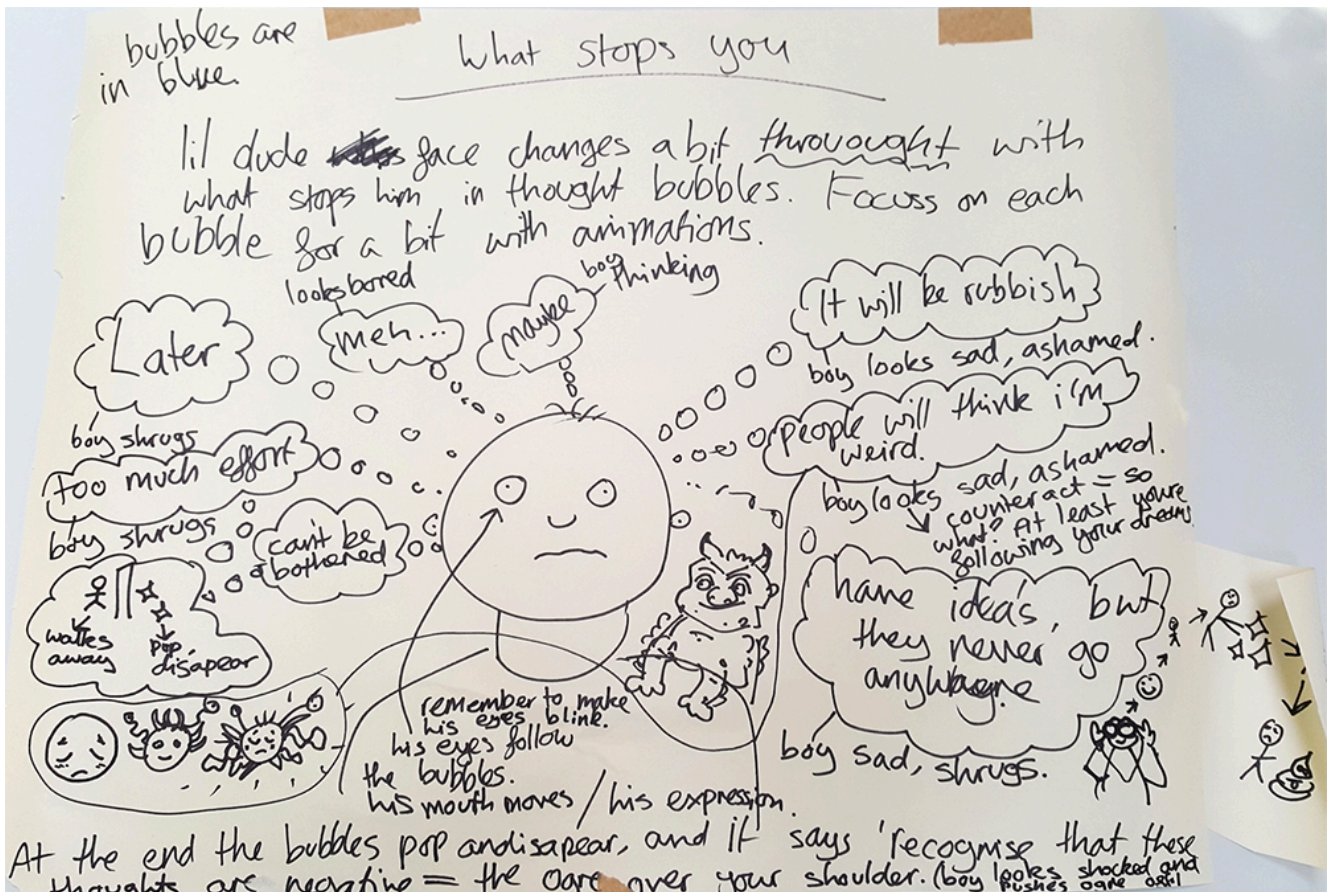 bubbles are
in blue.
What stops you
lil dude face changes a bit throvought with
what stops him in thought bubbles. Focuss on each
bubble for a bit with animations.
looks bored
boy thinking
Later
meh...
maybe
It will be rubbish
boy looks sad, ashamed.
boy shrugs
too much effort
boy shrugs
can't be
bothered
people will think i'm
weird.
boy looks sad, ashamed.
counteract = so
what? At least youre
following your dreams.
walks
away
pop,
disapear
have ideas, but
they never go
anywhere
boy sad, shrugs.
remember to make
his eyes blink.
his eyes follow
the bubbles.
his mouth moves / his expression.
At the end the bubbles pop and disapear, and it says 'recognise that these
thoughts are negative = the ogre over your shoulder. (boy looks shocked and
pushes ogre